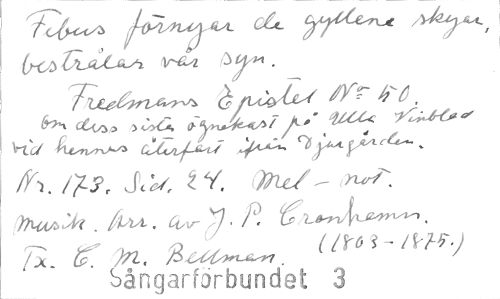 Febus förnyar de gyllene skyar,
bestrålar vår syn.
Fredmans Epistel No 50.
om dess sista ögnekast på Ulla Vinblad
vid hennes återfart ifrån Djurgården.
Nr. 173. Sid. 24. Mel - not.
musik. Arr. av J. P. Cronhamn.
(1803-1875.)
Tx. C. M. Bellman.
Sångarförbundet 3